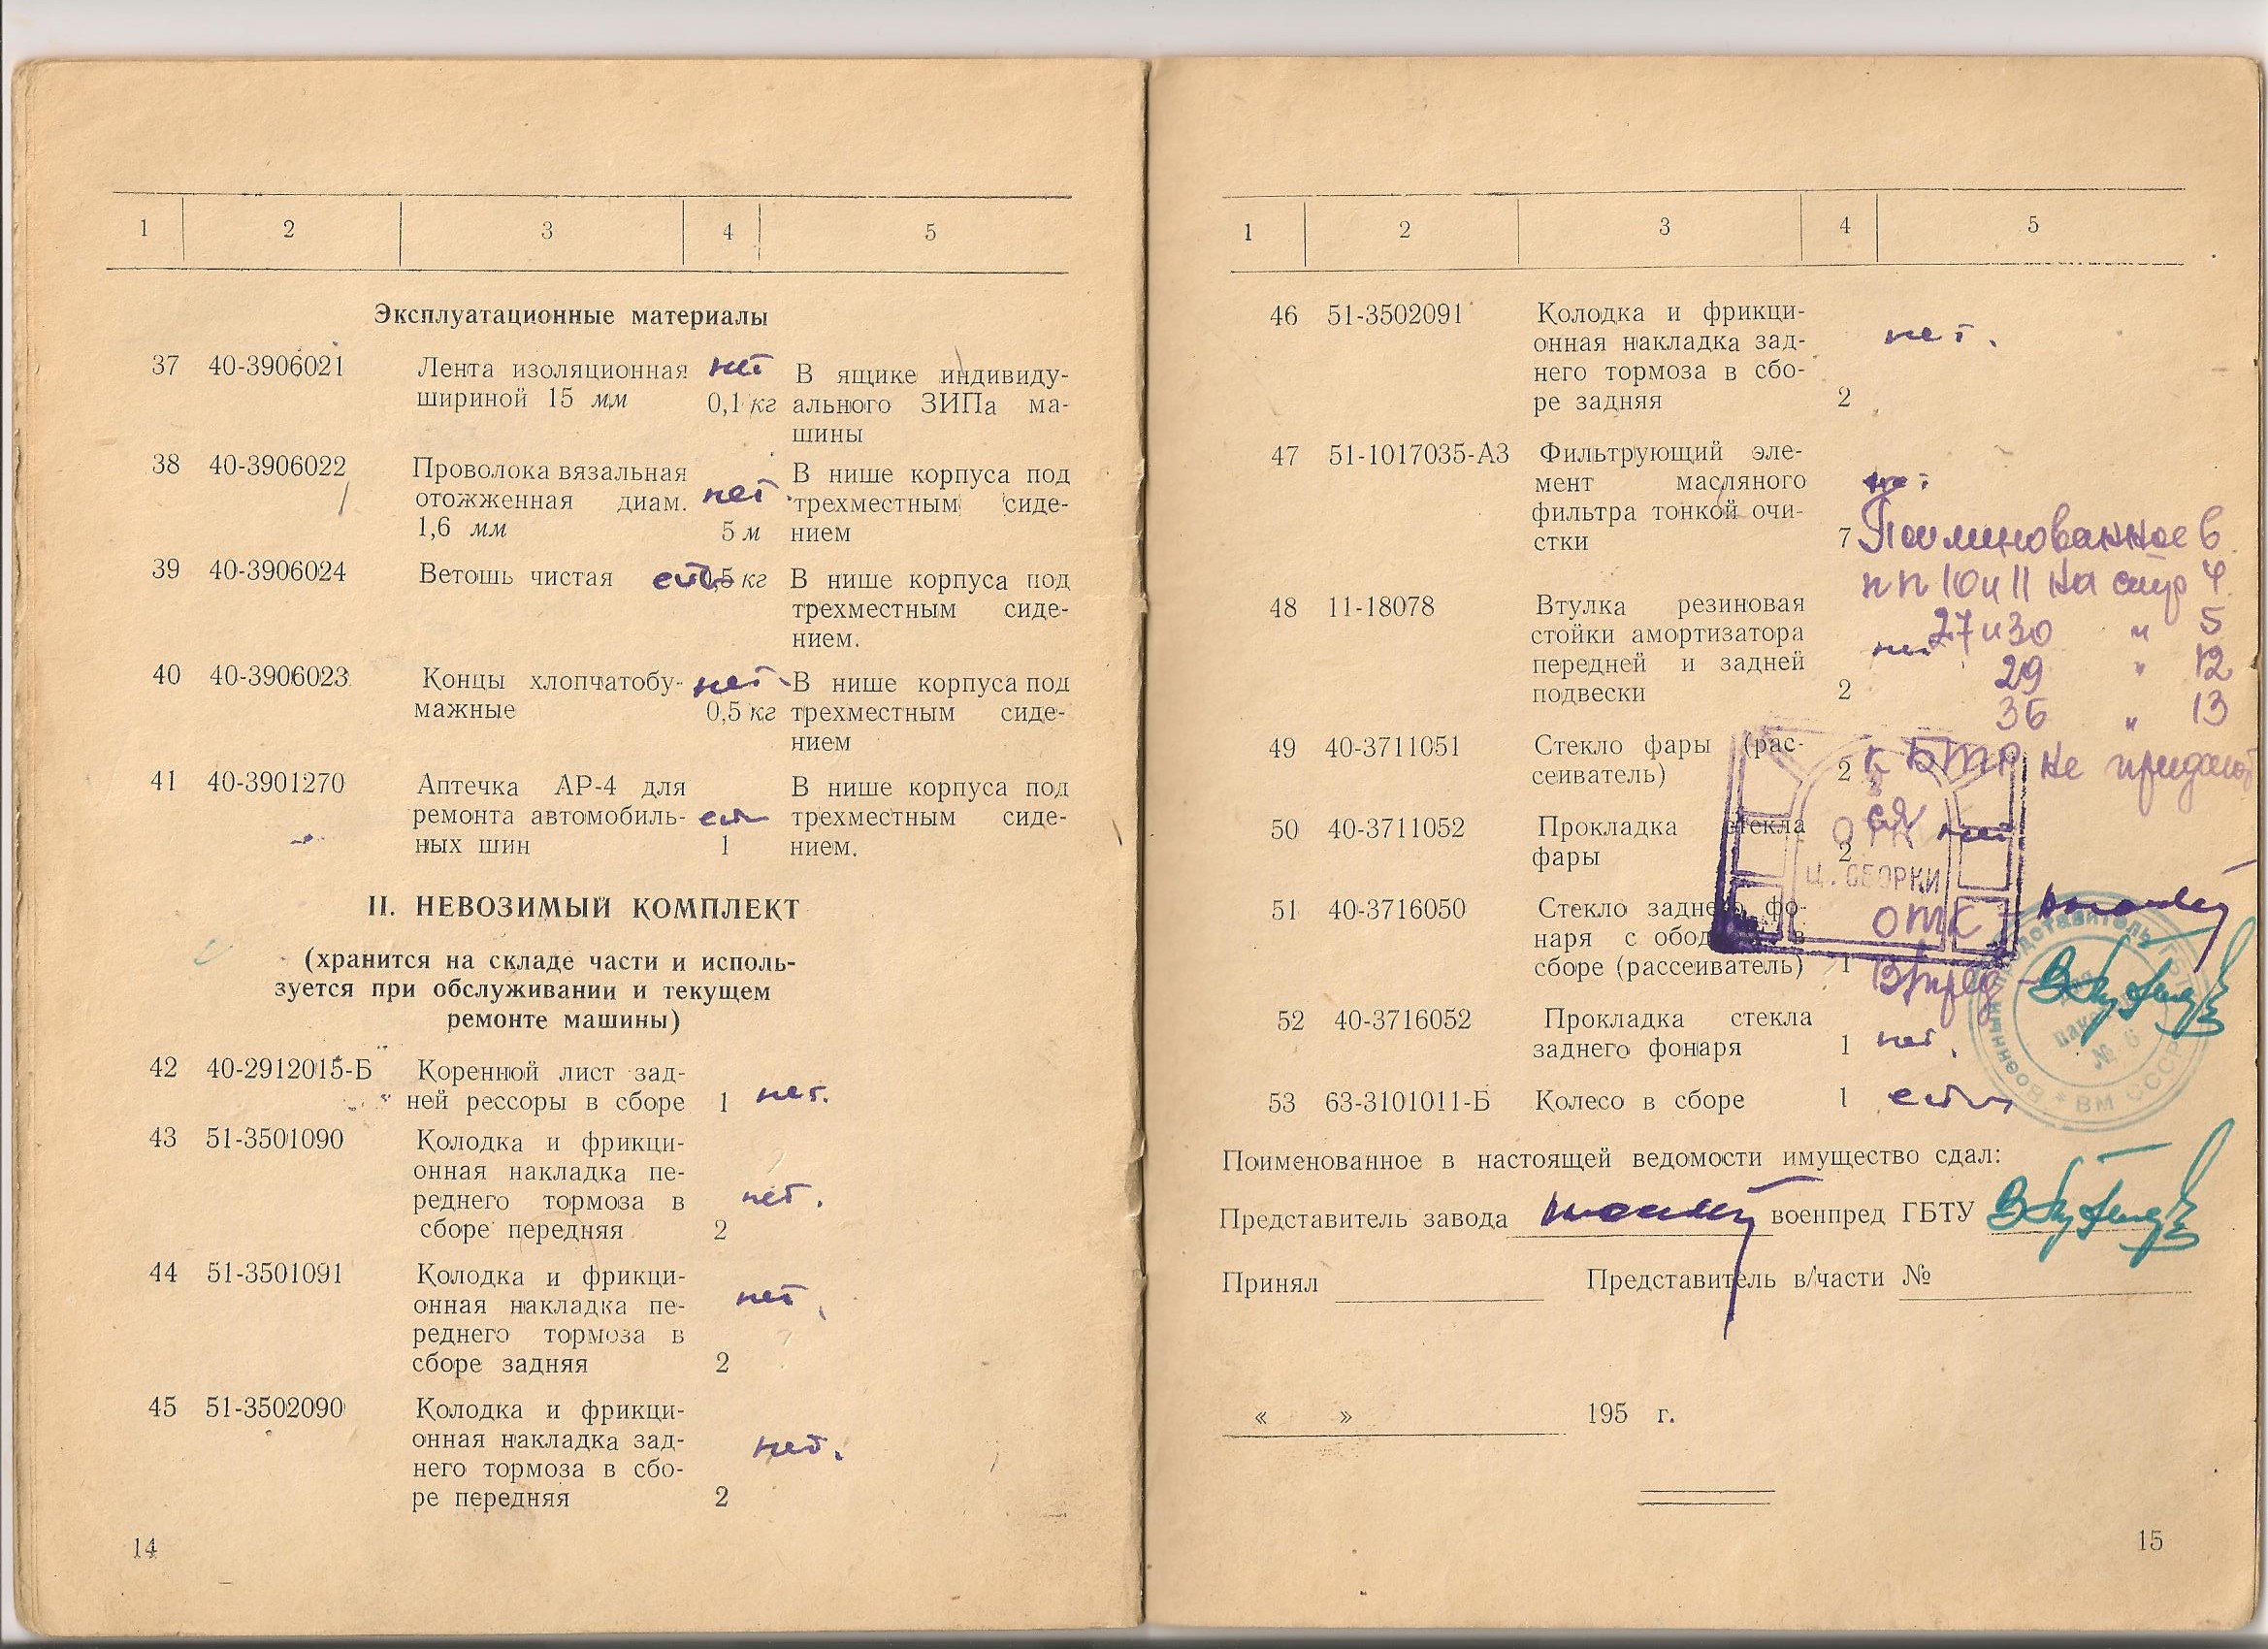 1 2 3 4 5
Эксплуатационные материалы
37 40-3906021 Лента изоляционная нет В ящике индивиду-
шириной 15 мм 0,1 кг ального ЗИПа ма-
шины
38 40-3906022 Проволока вязальная В нише корпуса под
отожженная диам. нет трехместным сиде-
1,6 мм 5 м нием
39 40-3906024 Ветошь чистая есть 0,5 кг В нише корпуса под
трехместным сиде-
нием.
40 40-3906023 Концы хлопчатобу- нет В нише корпуса под
мажные 0,5 кг трехместным сиде-
нием
41 40-3901270 Аптечка АР-4 для В нише корпуса под
ремонта автомобиль- есть трехместным сиде-
ных шин 1 нием.
II. НЕВОЗИМЫЙ КОМПЛЕКТ
(хранится на складе части и исполь-
зуется при обслуживании и текущем
ремонте машины)
42 40-2912015-Б Коренной лист зад-
ней рессоры в сборе 1 нет.
43 51-3501090 Колодка и фрикци-
онная накладка пе-
реднего тормоза в нет.
сборе передняя 2
44 51-3501091 Колодка и фрикци-
онная накладка пе- нет
реднего тормоза в
сборе задняя 2
45 51-3502090 Колодка и фрикци-
онная накладка зад- нет.
него тормоза в сбо-
ре передняя 2
14
1 2 3 4 5
46 51-3502091 Колодка и фрикци-
онная накладка зад- нет.
него тормоза в сбо-
ре задняя 2
47 51-1017035-А3 Фильтрующий эле-
мент масляного
фильтра тонкой очи-
стки 7
Поименованное в
пп 10 и 11 на стр 4.
27 и 30 " 5
29 " 12
36 " 13
к БТР не придает
ся
48 11-18078 Втулка резиновая
стойки амортизатора
передней и задней нет
подвески 2
49 40-3711051 Стекло фары (рас-
сеиватель) 2
50 40-3711052 Прокладка стекла нет
фары 2
ОТК
Ц. СБОРКИ
51 40-3716050 Стекло заднего фо-
наря с ободком в
сборе (рассеиватель) 1
ОТК
В/пред
Военный представитель
№ 6
ВМ СССР
52 40-3716052 Прокладка стекла
заднего фонаря 1 нет.
53 63-3101011-Б Колесо в сборе 1 есть
Поименованное в настоящей ведомости имущество сдал:
Представитель завода военпред ГБТУ
Принял Представитель в/части №
« » 195 г.
15